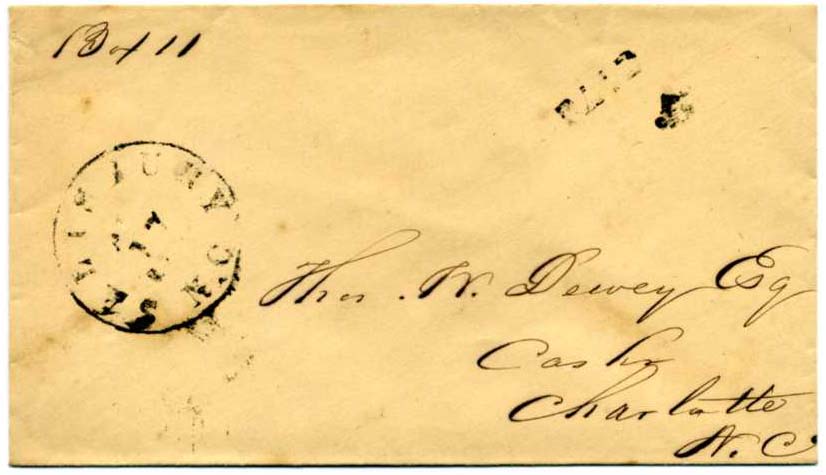 Box 11
PAID
5
SALISBURY N.C.
Thos. W. Dewey Esq
Cashr
Charlotte
N. C.